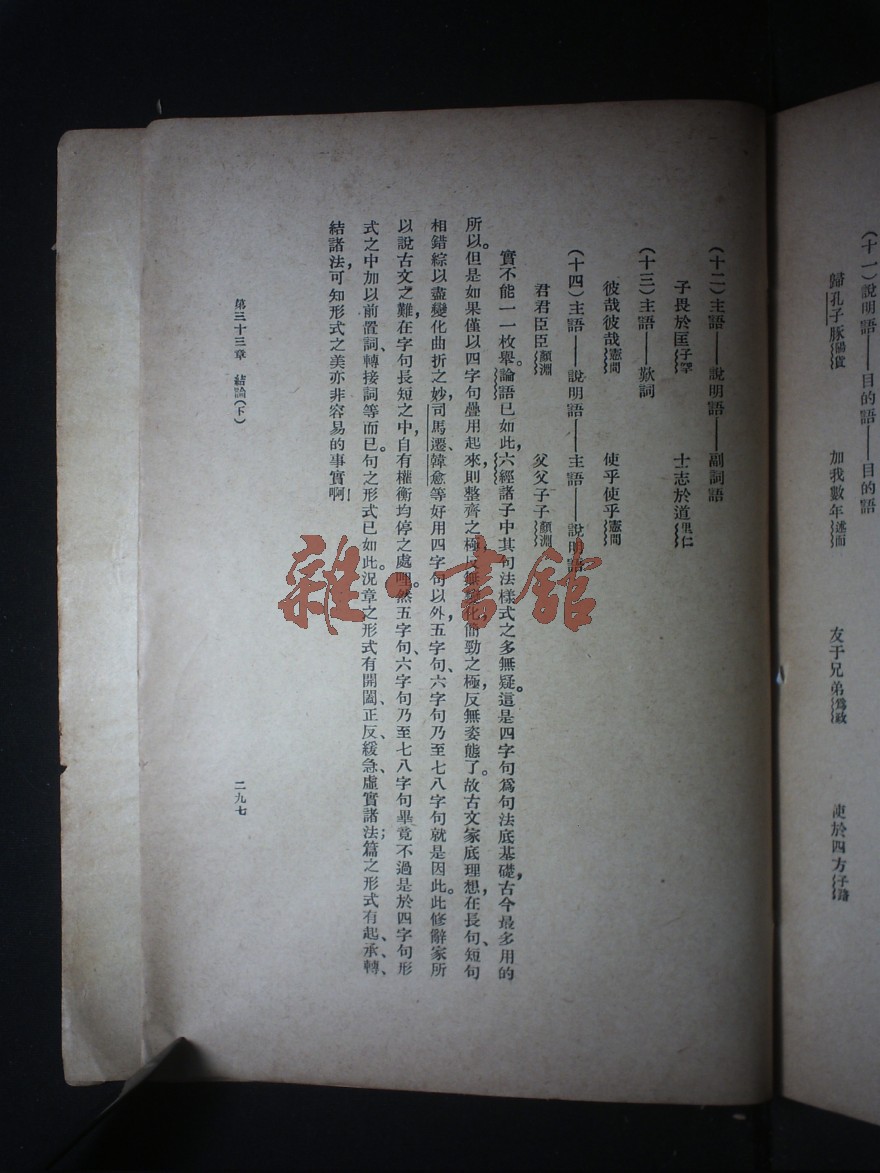 (十一)說明語——目的語——目的語
歸孔子豚陽貨 加我數年述而 友于兄弟爲政 使於四方子路
(十二)主語——說明語——副詞語
子畏於匡子罕 士志於道里仁
(十三)主語——歎詞
彼哉彼哉憲問 使乎使乎憲問
(十四)主語——說明語——主語——說明語
君君臣臣顏淵 父父子子顏淵
實不能一一枚舉。論語已如此,六經諸子中其句法樣式之多無疑。這是四字句爲句法底基礎,古今最多用的
所以。但是如果僅以四字句疊用起來,則整齊之極,反無變化,簡勁之極,反無姿態了。故古文家底理想,在長句、短句
相錯綜以盡變化曲折之妙,司馬遷、韓愈等好用四字句以外,五字句、六字句乃至七八字句就是因此。此修辭家所
以說古文之難,在字句長短之中自有權衡均停之處哩。然五字句、六字句乃至七八字句畢竟不過是於四字句形
式之中加以前置詞、轉接詞等而已。句之形式已如此。況章之形式有開闔、正反、緩急、虛實諸法;篇之形式有起、承、轉、
結諸法,可知形式之美亦非容易的事實啊!
第三十三章 結論(下)
二九七
雜·書館